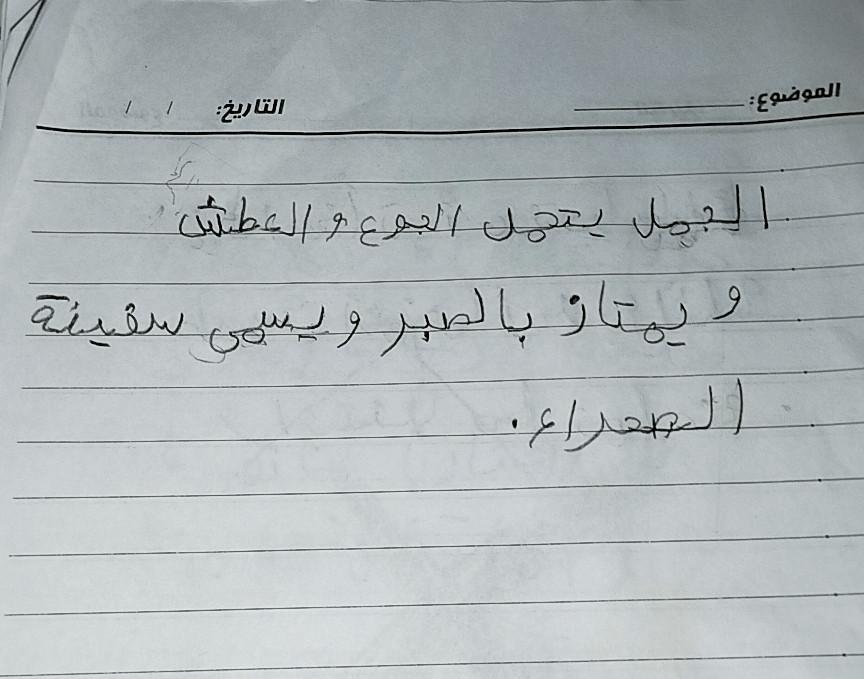 الموضوع: التاريخ: / /
الجمل يتحمل الجوع والعطش
ويمتاز بالصبر ويسمى سفينة
الصحراء.